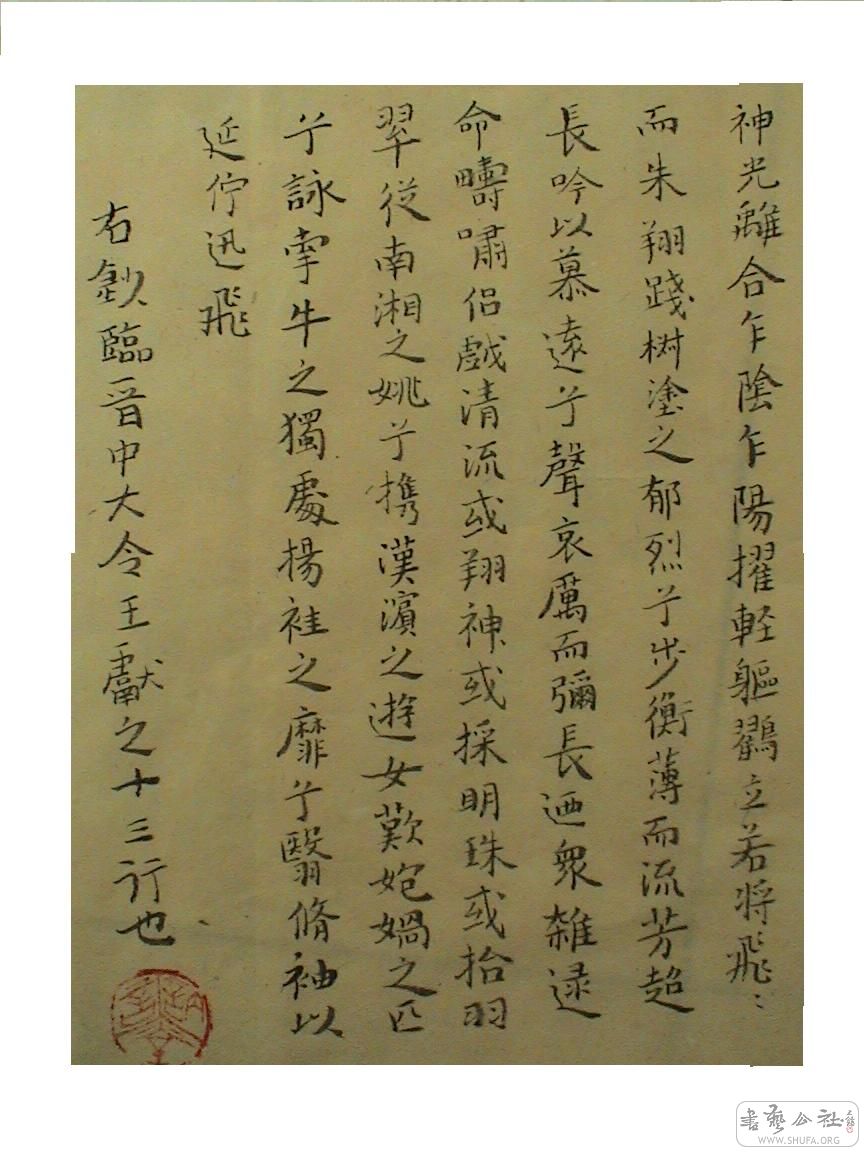 神光離合乍陰乍陽擢軽軀鶴立若将飛〻
而朱翔踐樹塗之郁烈兮步衡薄而流芳超
長吟以慕遠兮聲哀厲而彌長迺衆雑逯
命疇嘯侶戯清流或翔神或採明珠或拾羽
翠從南湘之姚兮攜漢濱之遊女歎㚿媧之匹
兮詠牽牛之獨處揚袿之靡兮翳脩袖以
延佇迅飛
右鈔臨晋中大令王獻之十三行也
書藝公社
WWW.SHUFA.ORG